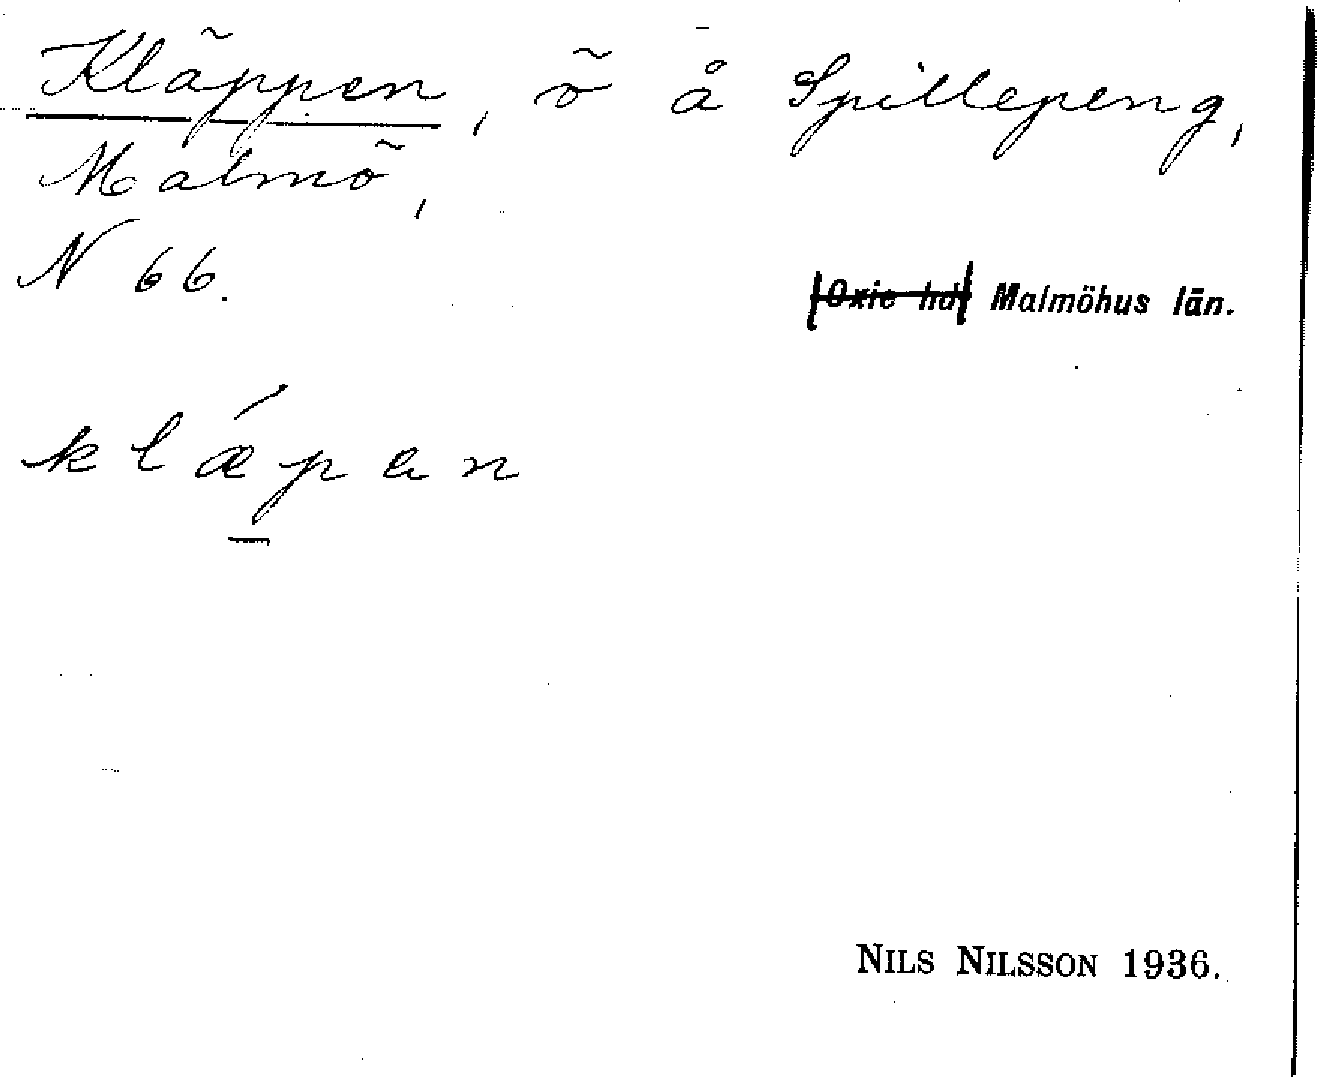 Kläppen, ö å Spillepeng,
Malmö,
N 66.
Oxie hd Malmöhus län.
klǽpan
NILS NILSSON 1936.